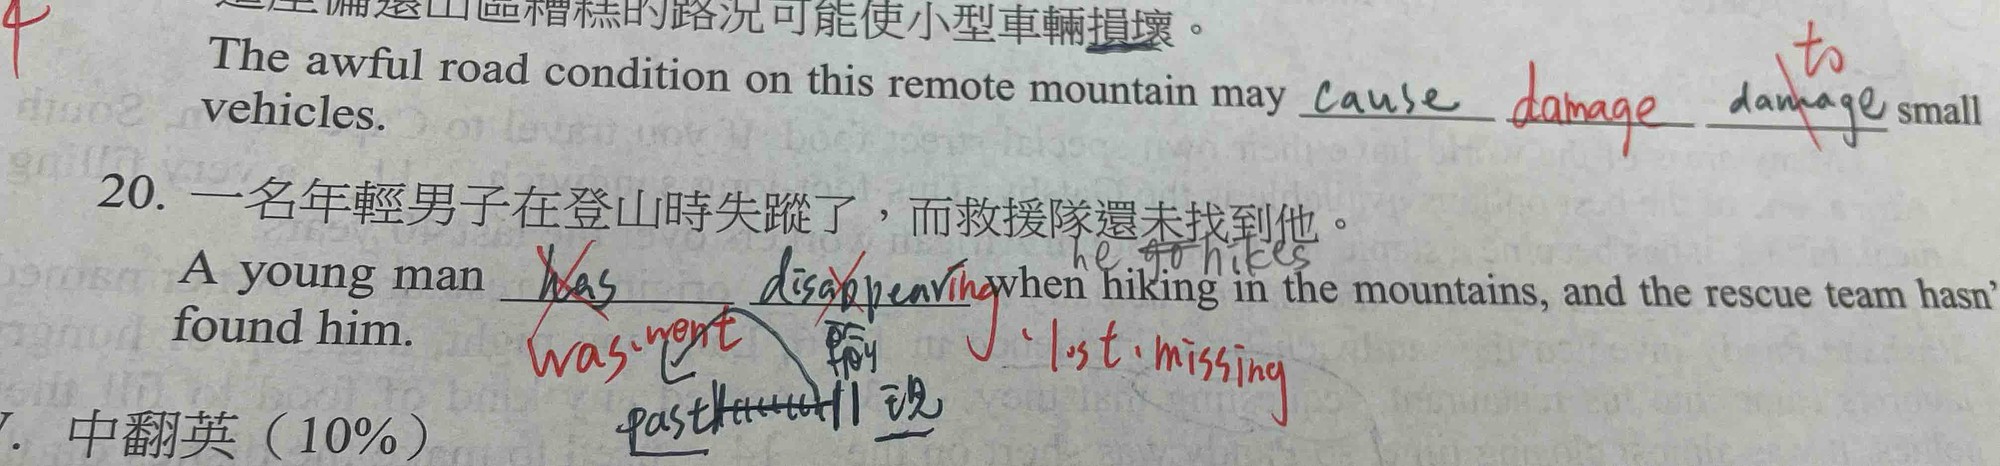 這座偏遠山區糟糕的路況可能使小型車輛損壞。
to
The awful road condition on this remote mountain may cause damage damage small
vehicles.
20. 一名年輕男子在登山時失蹤了，而救援隊還未找到他。
he go hikes
A young man has disappearing when hiking in the mountains, and the rescue team hasn'
found him.
was. went . lost . missing
past 現
. 中翻英（10%）